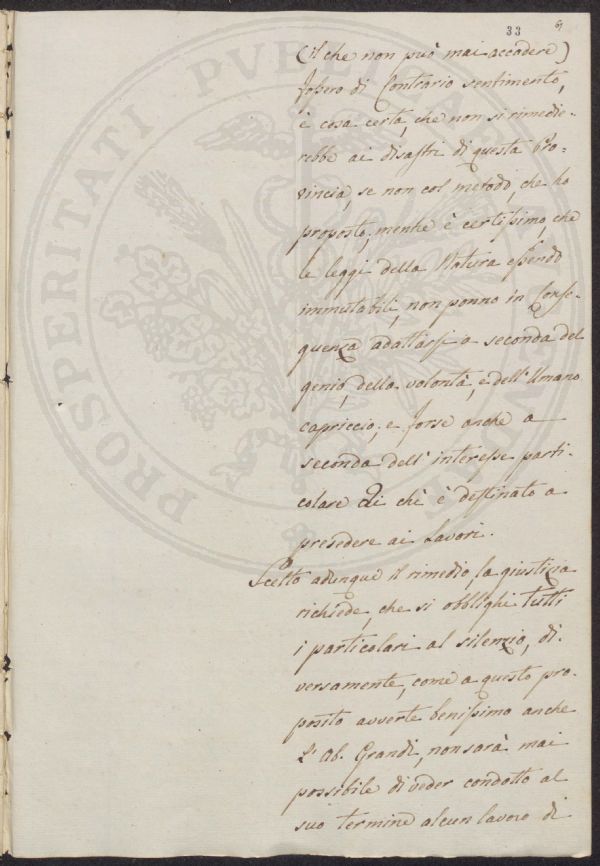 33 61
(il che non può mai accadere)
fossero di Contrario sentimento,
è cosa certa, che non si rimedie-
rebbe ai disastri di questa Pro-
vincia, se non col metodo, che ho
proposto, mentre è certissimo, che
le leggi della Natura essendo
immutabili, non ponno in Conse-
quenza adattarsi a seconda del
genio, della volontà, e dell'Umano
capriccio, e forse anche a
seconda dell'interesse parti-
colare di chi è destinato a
presedere ai Lavori.
Scelto adunque il rimedio, la giustizia
richiede, che si obblighi tutti
i particolari al silenzio, di-
versamente, come a questo pro-
posito avverte benissimo anche
L'Ab. Grandi, non sarà mai
possibile di veder condotto al
suo termine alcun lavoro di
PROSPERITATI PUBLICAE AUGENDAE